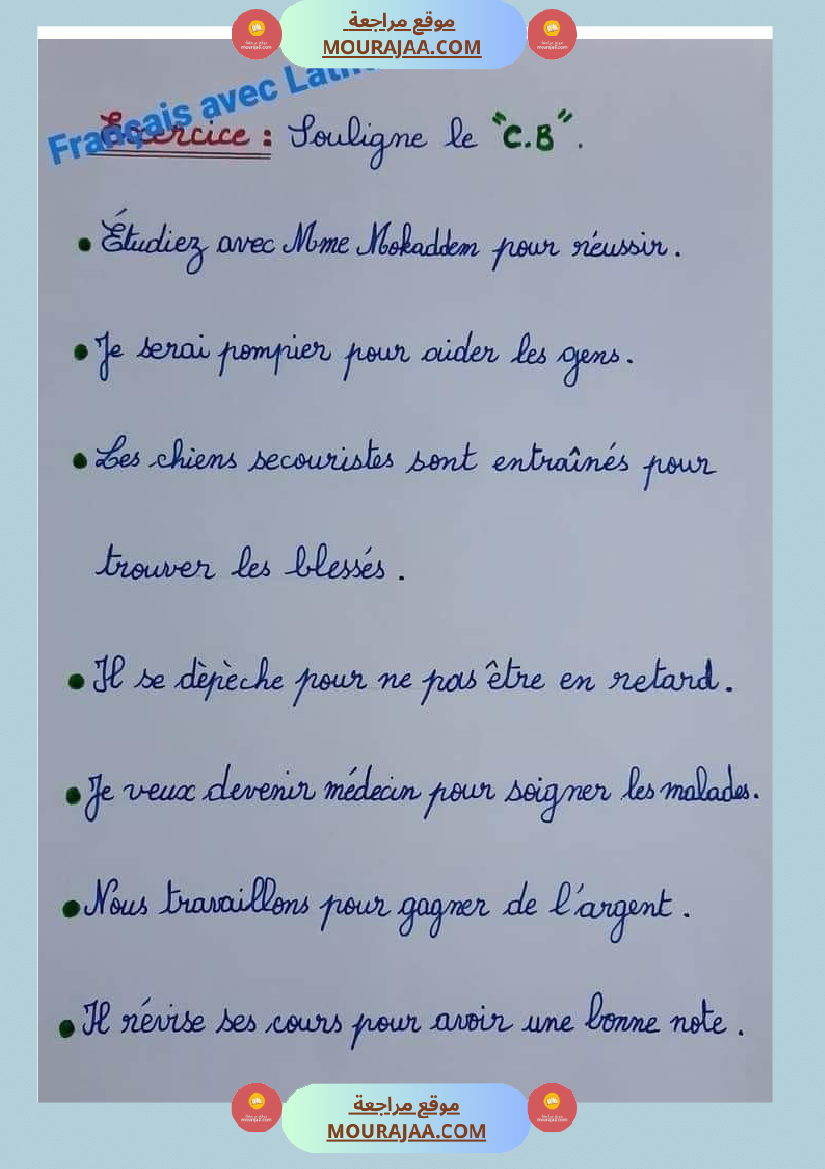 موقع مراجعة
MOURAJAA.COM
Français avec
Exercice : Souligne le "C.B".
• Étudiez avec Mme Mokaddem pour réussir.
• Je serai pompier pour aider les gens.
• Les chiens secouristes sont entraînés pour
trouver les blessés.
• Il se dèpèche pour ne pas être en retard.
• Je veux devenir médecin pour soigner les malades.
• Nous travaillons pour gagner de l'argent.
• Il révise ses cours pour avoir une bonne note.
موقع مراجعة
MOURAJAA.COM